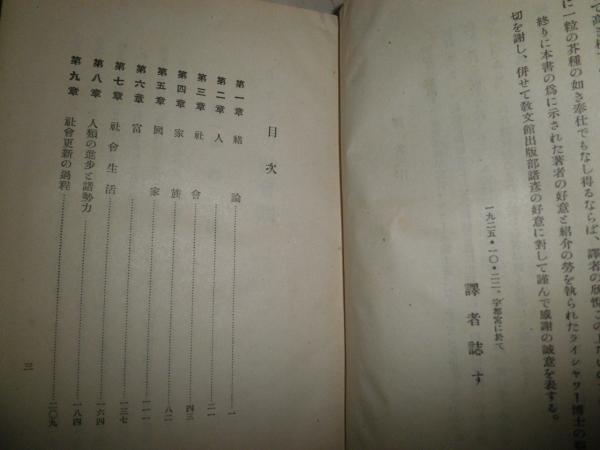 に一粒の芥種の如き奉仕でもなし得るならば、譯者の欣悦この上
終りに本書の爲に示された著者の好意と紹介の勞を執られたライシャワー博士の
切を謝し、併せて敎文館出版部諸彦の好意に對して謹んで感謝の誠意を表する。
一九二五・一〇・二二、宇都宮に於て
譯者誌す
目次
第一章 緒論 一
第二章 人 二一
第三章 社會 四三
第四章 家族 八二
第五章 國家 一一一
第六章 富 一三七
第七章 社會生活 一六四
第八章 人類の進步と諸勢力 一八四
第九章 社會更新の過程 二〇九
三